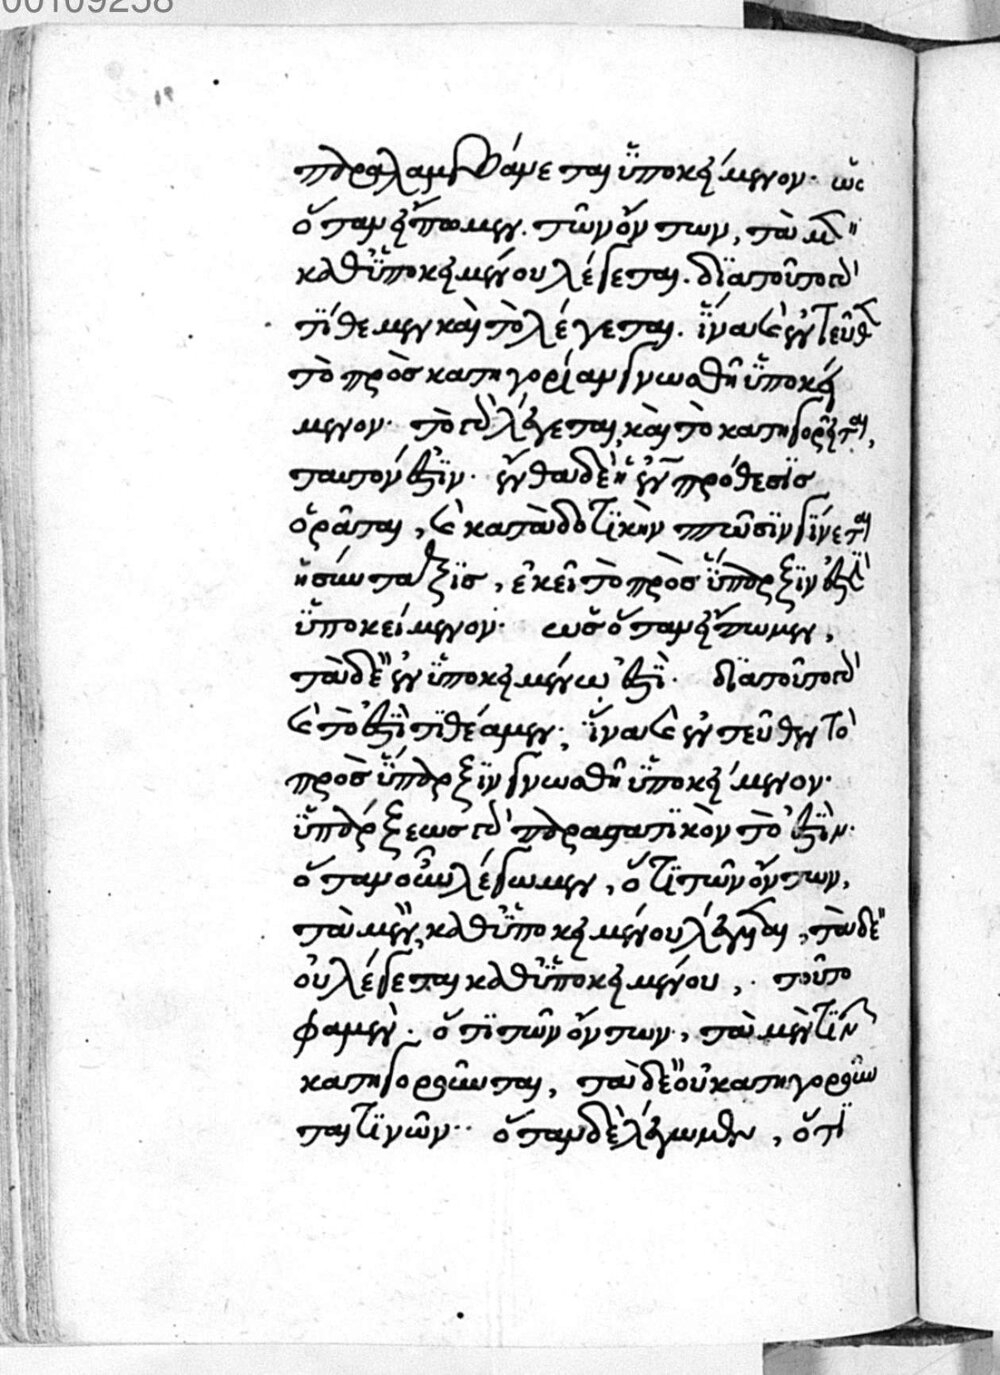 00109258
παραλαμβάνεται ὑποκείμενον· ὡς
ὅταν εἴπωμεν· τῶν ὄντων, τὰ μὲν
καθ' ὑποκειμένου λέγεται. διατοῦτο δὲ
τίθεμεν καὶ τὸ λέγεται. ἵνα καὶ ἐντεῦθεν
τὸ πρὸς κατηγορίαν γνωσθῆ ὑποκεί
μενον· τὸ δὲ λέγεται καὶ τὸ κατηγορεῖται,
ταυτόν ἐστιν. ἔνθα δὲ ἡ ἐν πρόθεσις
ὁρᾶται, καὶ κατὰ δοτικὴν πτῶσιν γίνεται
ἡ σύνταξις, ἐκεῖ τὸ πρὸς ὕπαρξιν ἐστὶ
ὑποκείμενον· ὡς ὅταν εἴπωμεν,
τὰ δὲ ἐν ὑποκειμένω ἐστί. διατοῦτο δὲ
καὶ τὸ ἐστὶ τιθέαμεν, ἵνα καὶ ἐντεῦθεν τὸ
πρὸς ὕπαρξιν γνωσθῆ ὑποκείμενον·
ὑπάρξεως δὲ παραστατικὸν τὸ ἐστίν·
ὅταν οὖν λέγωμεν, ὅτι τῶν ὄντων,
τὰ μὲν, καθ' ὑποκειμένου λέγεται, τὰ δὲ
οὐ λέγεται καθ' ὑποκειμένου, τοῦτο
φαμὲν· ὅτι τῶν ὄντων, τὰ μὲν τινῶν
κατηγοροῦνται, τὰ δὲ οὐ κατηγοροῦν
ται τινῶν· ὅταν δὲ λέγωμεν, ὅτι